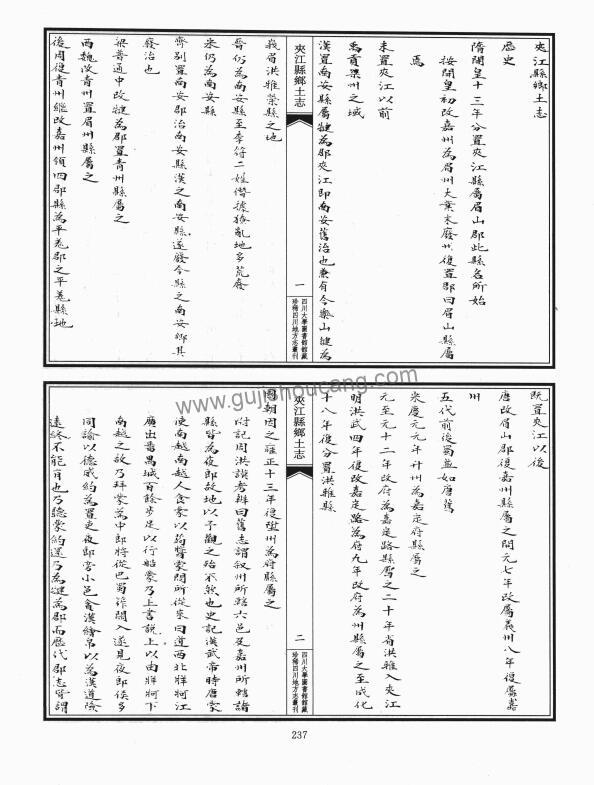 夾江縣鄉土志
歷史
隋開皇十三年分置夾江縣屬眉山郡此縣名所始
按開皇初改嘉州為眉州大業末廢州復置郡曰眉山縣屬
焉
未置夾江以前
禹貢梁州之域
漢置南安縣屬犍為郡夾江即南安舊治也兼有今樂山犍為
夾江縣鄉土志
一
四川大學圖書館館藏
珍稀四川地方志叢刊
峩眉洪雅榮縣之地
晉仍為南安縣至李苻二姓僭據獠亂地多荒廢
宋仍為南安縣
齊別置南安郡治南安縣漢之南安縣遂廢今縣之南安鄉其
廢治也
梁普通中改犍為郡置青州縣屬之
西魏改青州置眉州縣屬之
後周復青州繼改嘉州領四郡縣為平羌郡之平羌縣地
既置夾江以後
唐改眉山郡復嘉州縣屬之開元七年改屬義州八年復屬嘉
州
五代前後蜀並如唐舊
宋慶元元年升州為嘉定府縣屬之
元至元十二年改府為嘉定路縣屬之二十年省洪雅入夾江
明洪武四年復改嘉定路為府九年改府為州縣屬之至成化
十八年復分置洪雅縣
夾江縣鄉土志
二
四川大學圖書館館藏
珍稀四川地方志叢刊
國朝因之雍正十三年復陞州為府縣屬之
附記周洪謨考辨曰舊志謂叙州所轄六邑及嘉州所轄諸
縣皆為夜郎故地以予觀之殆不然也史記漢武帝時唐蒙
使南越南越人食蒙以蒟醬蒙問所從來曰道西北牂牁江
廣出番禺城百餘步足以行船蒙乃上書說上以由牂牁下
南越之故乃拜蒙為中郎將從巴蜀筰關入遂見夜郎侯多
同諭以德威約為置吏夜郎旁小邑貪漢繒帛以為漢道險
遠終不能有也乃聽蒙約還乃為犍為郡而歷代郡志皆謂
237
www.gujishoucang.com